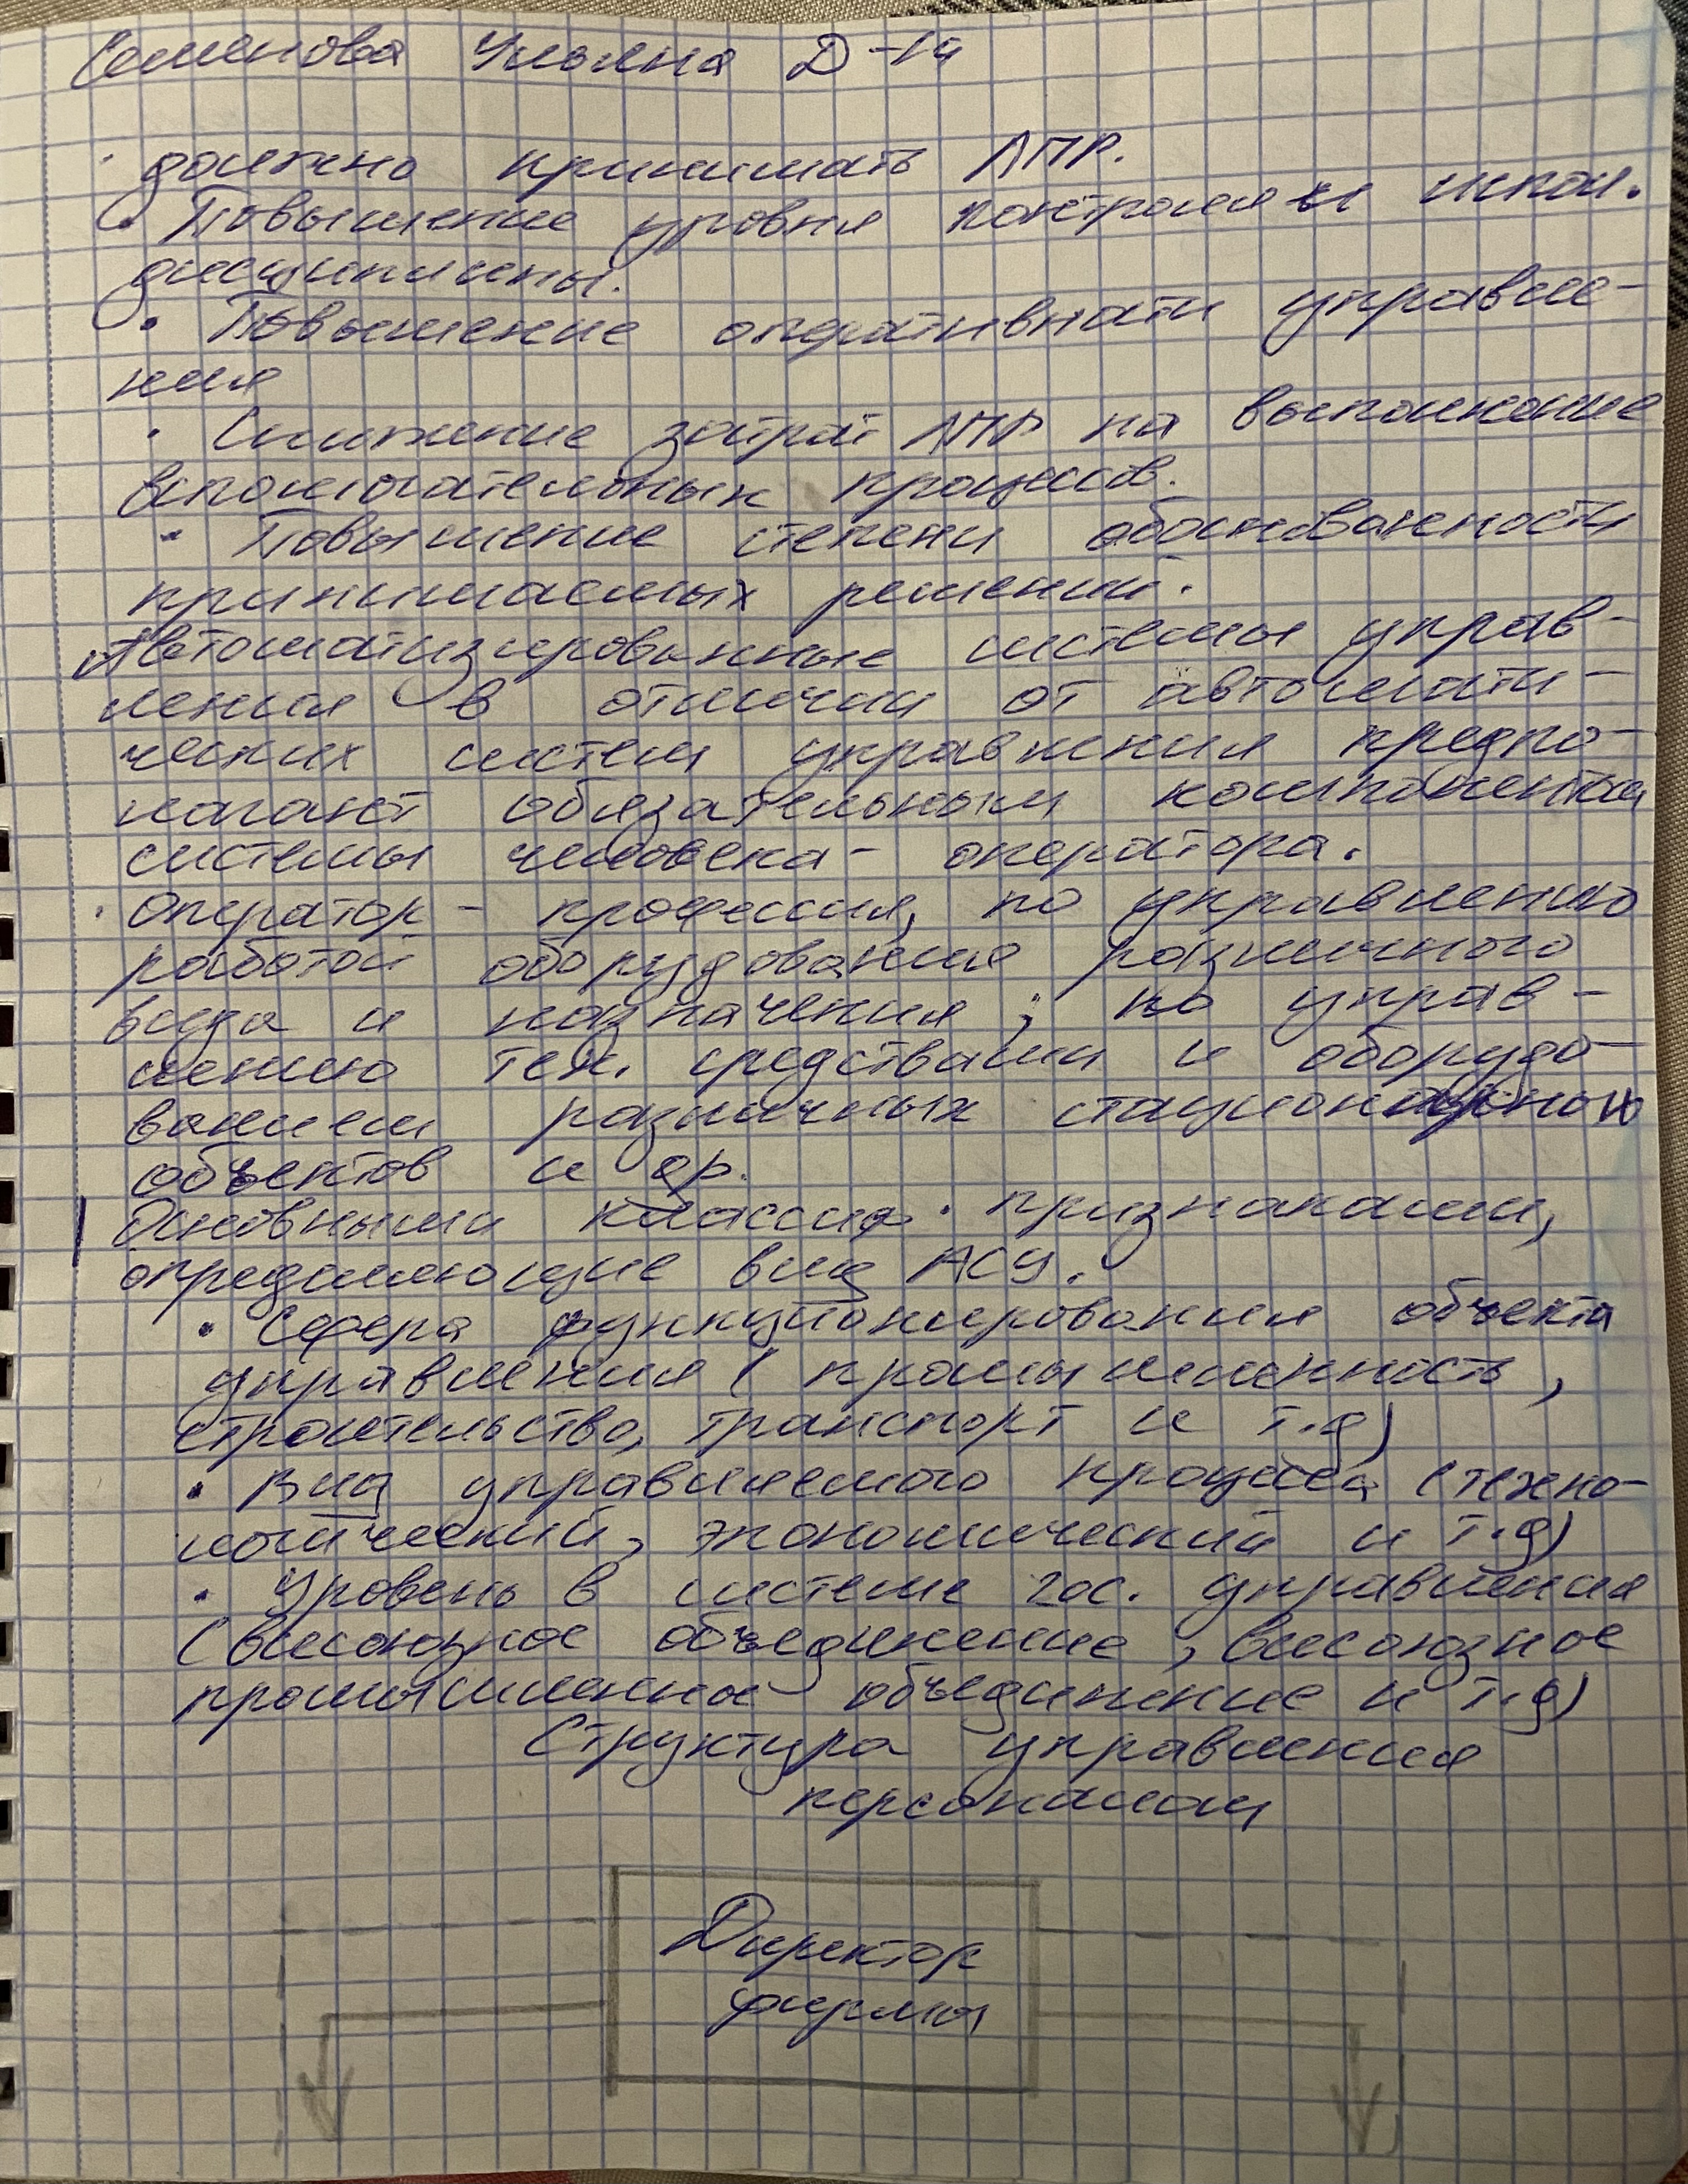 Семенова Ульяна Д-14
должно принимать ЛПР.
• Повышение уровня контроля и испол.
дисциплины.
• Повышение оперативнати управле-
ния
• Снижение затрат ЛПР на выполнение
вспомогательных процессов.
• Повышение степени обоснованности
принимаемых решений.
Автоматизированные системы управ-
ления в отличии от автомати-
ческих систем управления предпо-
лагают обязательным компонентом
системы человека- оператора.
• Оператор - профессия, по управлению
работой оборудования различного
вида и назначения; по управ-
лению тех. средствами и оборудо-
ванием различных стационарных
объектов и др.
Основными классиф. признаками,
определяющие вид АСУ.
• Сфера функционирования объекта
управления (промышленность,
строительство, транспорт и т.д)
• Вид управляемого процесса (техно-
логический, экономический и т.д)
• Уровень в системе гос. управления
(всесоюзное объединение, всесоюзное
промышленное объединение и т.д)
Структура управления
персоналом
Директор
фирмы